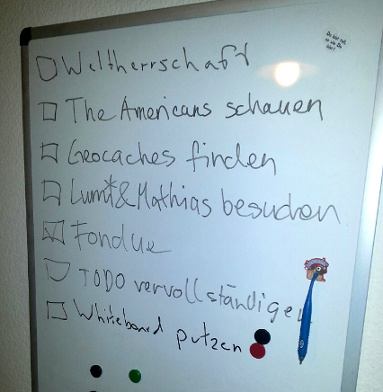 Weltherrschaft
The Americans schauen
Geocaches finden
Lumi*&Mathias besuchen
Fondue
TODO vervollständigen
Whiteboard putzen